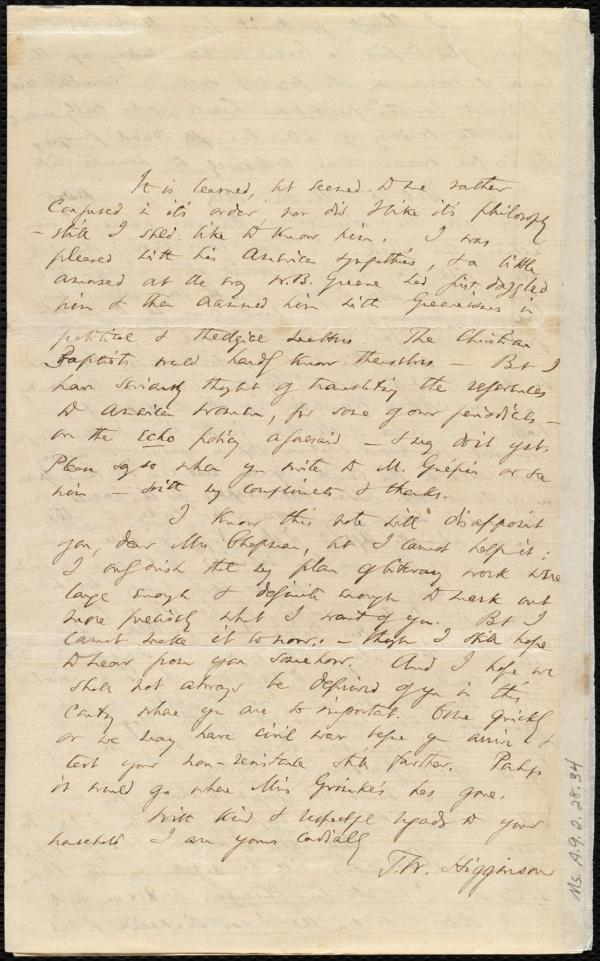 It is learned, but seemed to me rather
confused in it's order, nor did I like it's philosophy
- still I shd. like to know him. I was
pleased with his American sympathies, & a little
amused at the way W.B. Greene had first dazzled
him & then crammed him with Greeneisms in
political & theological matters. The Christian
Baptists would hardly know themselves - But I
have seriously thought of translating the references
to American women, for some of our periodicals -
on the echo policy aforesaid - & may do it yet.
Please say so when you write to M. Guépin or see
him - with my compliments & thanks.
I know this note will disappoint
you, dear Mrs Chapman, but I cannot help it:
I only wish that my plan of literary work were
large enough & definite enough to mark out
more precisely what I want of you. But I
cannot make it so now. - though I still hope
to hear from you somehow. And I hope we
shall not always be deprived of you in this
country where you are so important. Come quickly
or we may have civil war before you arrive &
test your non-resistance still farther. Perhaps
it would go where Miss Grimké's has gone.
With kind & respectful regards to your
household I am yours cordially
T.W. Higginson
Ms. A.9.2.28.34